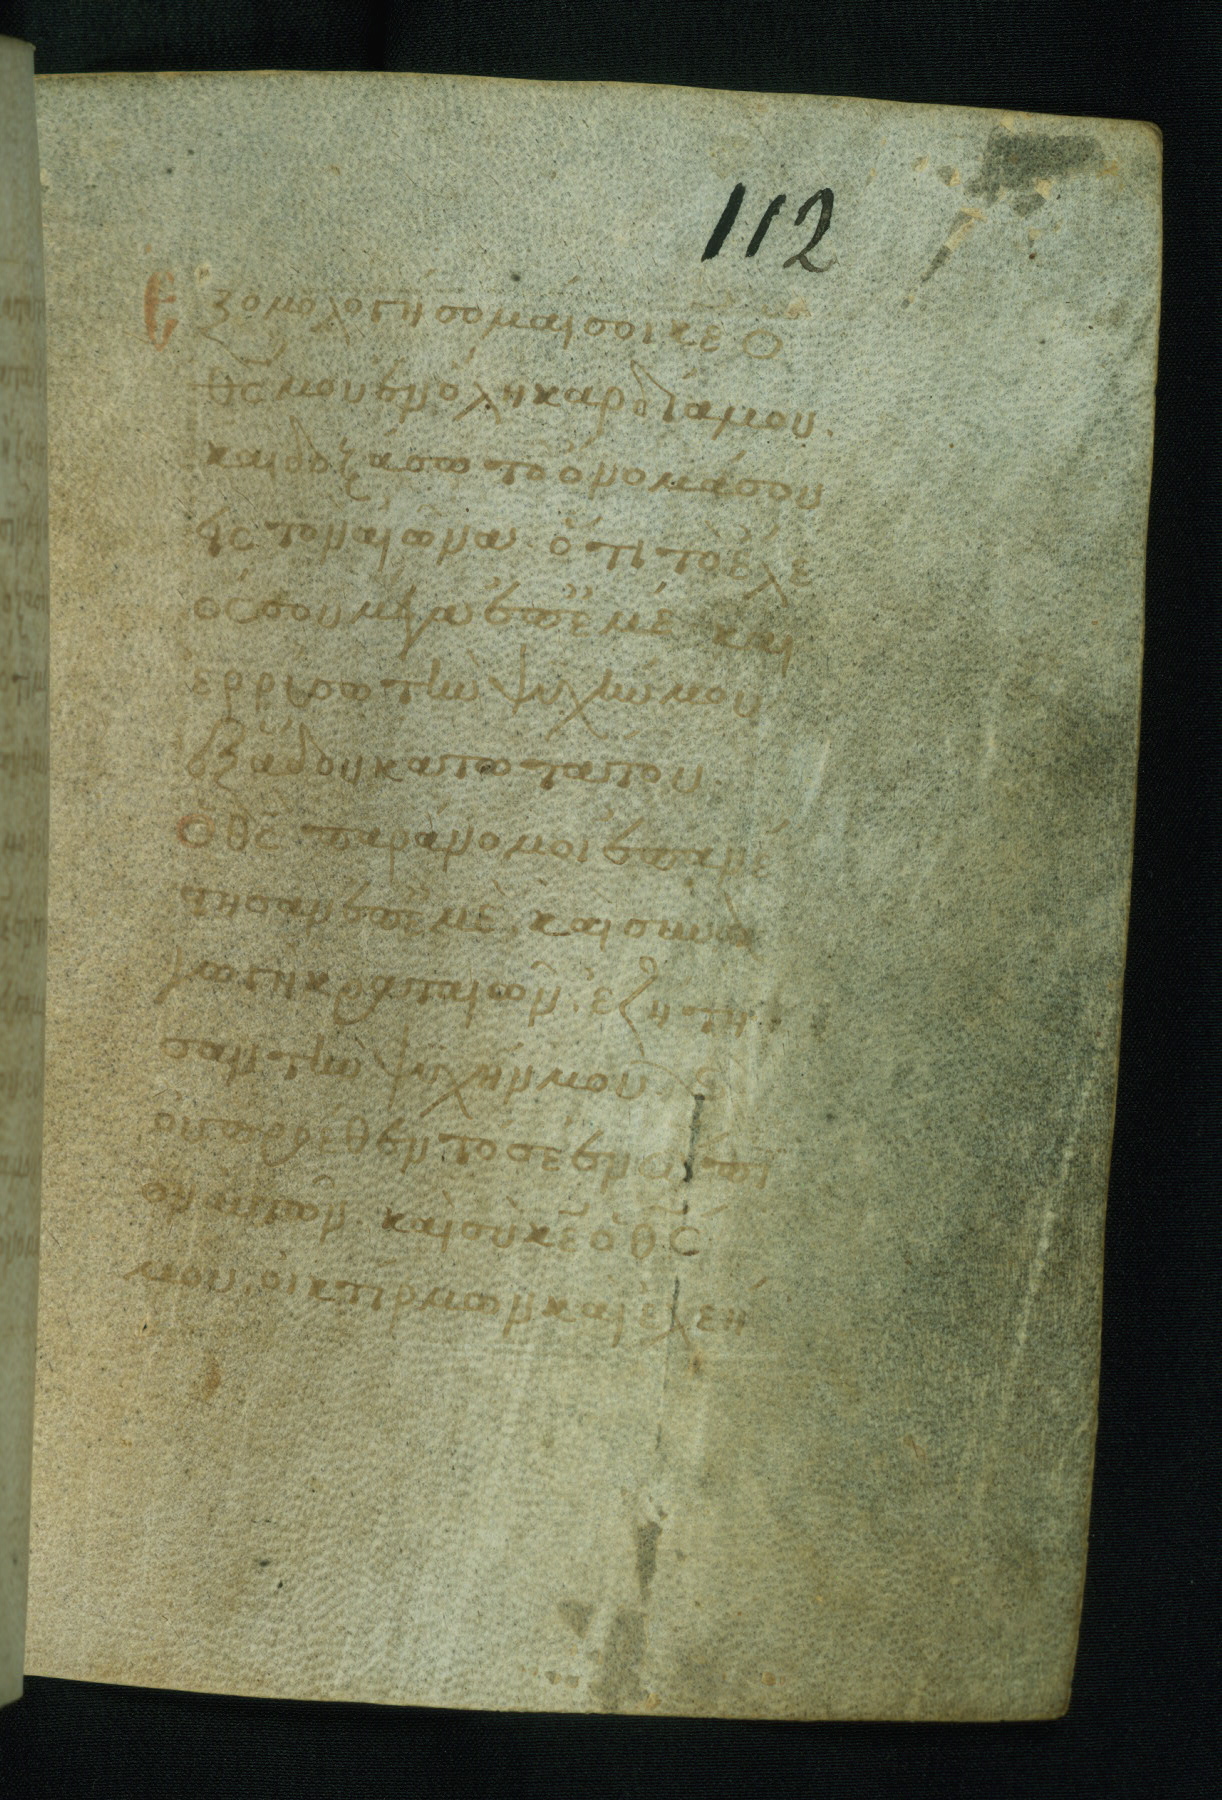 112
Ἐξομολογήσομαί σοι κε ὁ
θς μου ἐν ὅλη καρδία μου.
καὶ δοξάσω τὸ ὄνομά σου
εἰς τὸν αἰῶνα. ὅτι τὸ ἔλε
ός σου μέγα ἐπ ἐμέ καὶ
ἐρρύσω τὴν ψυχήν μου
ἐξ ἅδου κατωτάτου.
Ὁ θς παράνομοι ἐπανέ
στησαν ἐπ ἐμέ, καὶ συνα
γωγὴ κραταιῶν ἐζήτη
σαν τὴν ψυχήν μου,
οὐ προέθεντό σε ἐνώπι
ον αὐτῶν. καὶ σὺ κε ὁ θς
μου, οἰκτίρμων καὶ ἐλεή